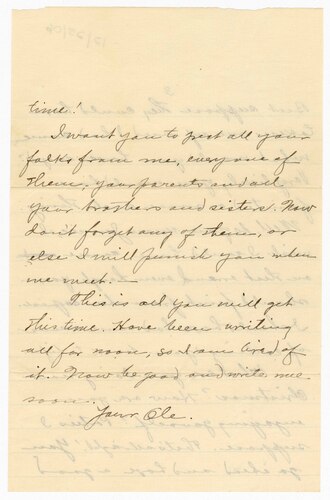 time!
I want you to pet all your
folks from me, everyone of
them, your parents and all
your brothers and sisters. Now
don't forget any of them, or
else I will punish you when
we meet.
This is all you will get
this time. Have been writing
all fore noon, so I am tired of
it. Now be good and write me
soon.
Your Ole.